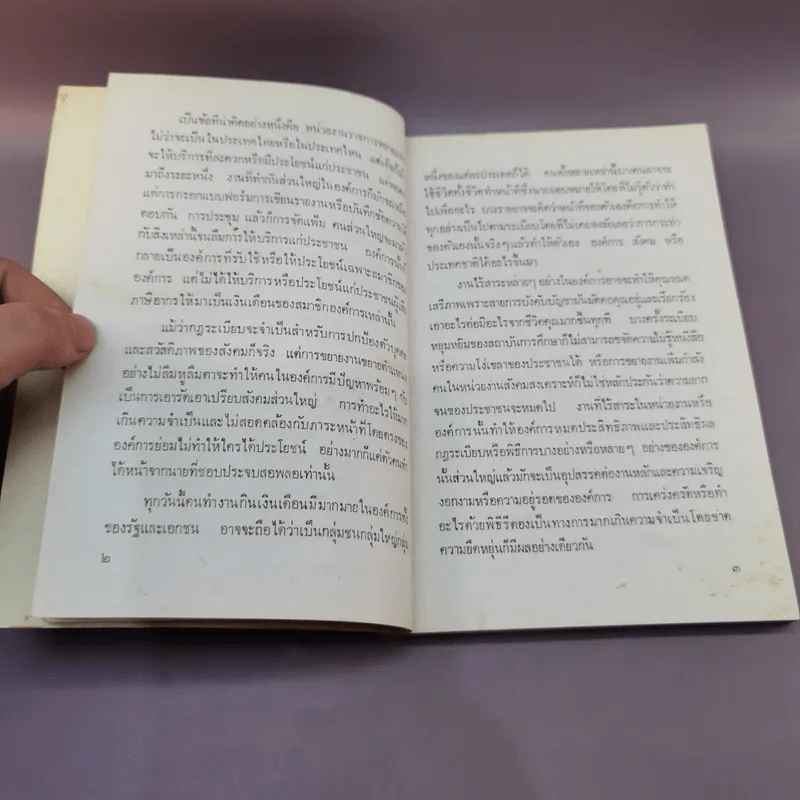 เป็นข้อที่น่าคิดอย่างหนึ่งคือ หน่วยงานราชการหลาย
ไม่ว่าจะเป็นในประเทศไทยหรือในประเทศไหน แต่เดิม
จะให้บริการที่สะดวกหรือมีประโยชน์แก่ประชาชน แต่พอ
มาถึงระยะหนึ่ง งานที่ทำกันส่วนใหญ่ในองค์การก็มักจะ
แต่การกรอกแบบฟอร์มการเขียนรายงานหรือบันทึกข้อความ
ตอบกัน การประชุม แล้วก็การจัดแฟ้ม คนส่วนใหญ่จะ
กับสิ่งเหล่านี้จนลืมการให้บริการแก่ประชาชน องค์การนั้น
กลายเป็นองค์การที่รับใช้หรือให้ประโยชน์เฉพาะสมาชิก
องค์การ แต่ไม่ได้ให้บริการหรือประโยชน์แก่ประชาชน
ภาษีอากรให้มาเป็นเงินเดือนของสมาชิกองค์การเหล่านั้น
แม้ว่ากฎระเบียบจะจำเป็นสำหรับการปกป้องตัวบุคคล
และสวัสดิภาพของสังคมก็จริง แต่การขยายงานขยายตำแหน่ง
อย่างไม่ลืมหูลืมตาจะทำให้คนในองค์การมีปัญหาพร้อมๆ กับ
เป็นการเอารัดเอาเปรียบสังคมส่วนใหญ่ การทำอะไรให้มาก
เกินความจำเป็นและไม่สอดคล้องกับภาระหน้าที่โดยตรงของ
องค์การย่อมไม่ทำให้ใครได้ประโยชน์ อย่างมากก็แค่ตัวคนทำ
ได้หน้าจากนายที่ชอบประจบสอพลอเท่านั้น
ทุกวันนี้คนทำงานกินเงินเดือนมีมากมายในองค์การทั้ง
ของรัฐและเอกชน อาจจะถือได้ว่าเป็นกลุ่มชนกลุ่มใหญ่กลุ่ม
๒
หนึ่งของแต่ละประเทศก็ได้ คนทั้งหลายเหล่านี้บางคนอาจจะ
ใช้ชีวิตทั้งชีวิตทำหน้าที่ซึ่งนายมอบหมายให้โดยที่ไม่รู้ตัวว่าทำ
ไปเพื่ออะไร บางรายอาจจะคิดว่าหน้าที่ของตัวเองคือการทำให้
ทุกอย่างเป็นไปตามระเบียบโดยที่ไม่เคยเฉลียวใจเลยว่าการกระทำ
ของตัวเองนั้นจริงๆ แล้วทำให้ตัวเอง องค์การ สังคม หรือ
ประเทศชาติได้อะไรขึ้นมา
งานไร้สาระหลายๆ อย่างในองค์การอาจจะทำให้คุณหมด
เสรีภาพเพราะสายการบังคับบัญชามันมัดคอคุณอยู่และเรียกร้อง
เอาอะไรต่อมิอะไรจากชีวิตคุณมากขึ้นทุกที บางครั้งระเบียบ
หยุมหยิมของสถาบันการศึกษาก็ไม่สามารถขจัดความไม่รู้หนังสือ
หรือความโง่เขลาของประชาชนได้ หรือการขยายงานเพิ่มกำลัง
คนในหน่วยงานสังคมสงเคราะห์ก็ไม่ใช่หลักประกันว่าความยาก
จนของประชาชนจะหมดไป งานที่ไร้สาระในหน่วยงานหรือ
องค์การนั้นทำให้องค์การหมดประสิทธิภาพและประสิทธิผล
กฎระเบียบหรือพิธีการบางอย่างหรือหลายๆ อย่างขององค์การ
นั้นส่วนใหญ่แล้วมักจะเป็นอุปสรรคต่องานหลักและความเจริญ
งอกงามหรือความอยู่รอดขององค์การ การเคร่งครัดหรือทำ
อะไรด้วยพิธีรีตองเป็นทางการมากเกินความจำเป็นโดยขาด
ความยืดหยุ่นก็มีผลอย่างเดียวกัน
๓